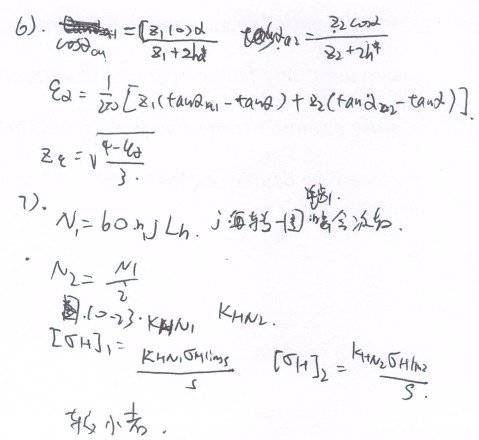 6). cosαa1 = z1cosα / z1+2h* cosαa2 = z2cosα / z2+2h*
εα = 1/2π [z1(tanαa1-tanα)+z2(tanαa2-tanα)].
Zε = √ 4-εα / 3.
7).
N1=60n1jLh. j 每转一圈啮合次数.
N2 = N1 / i
图10-23. KHN1 KHN2.
[σH]1 = KHN1σHlim1 / S [σH]2 = KHN2σHlim2 / S.
较小者.